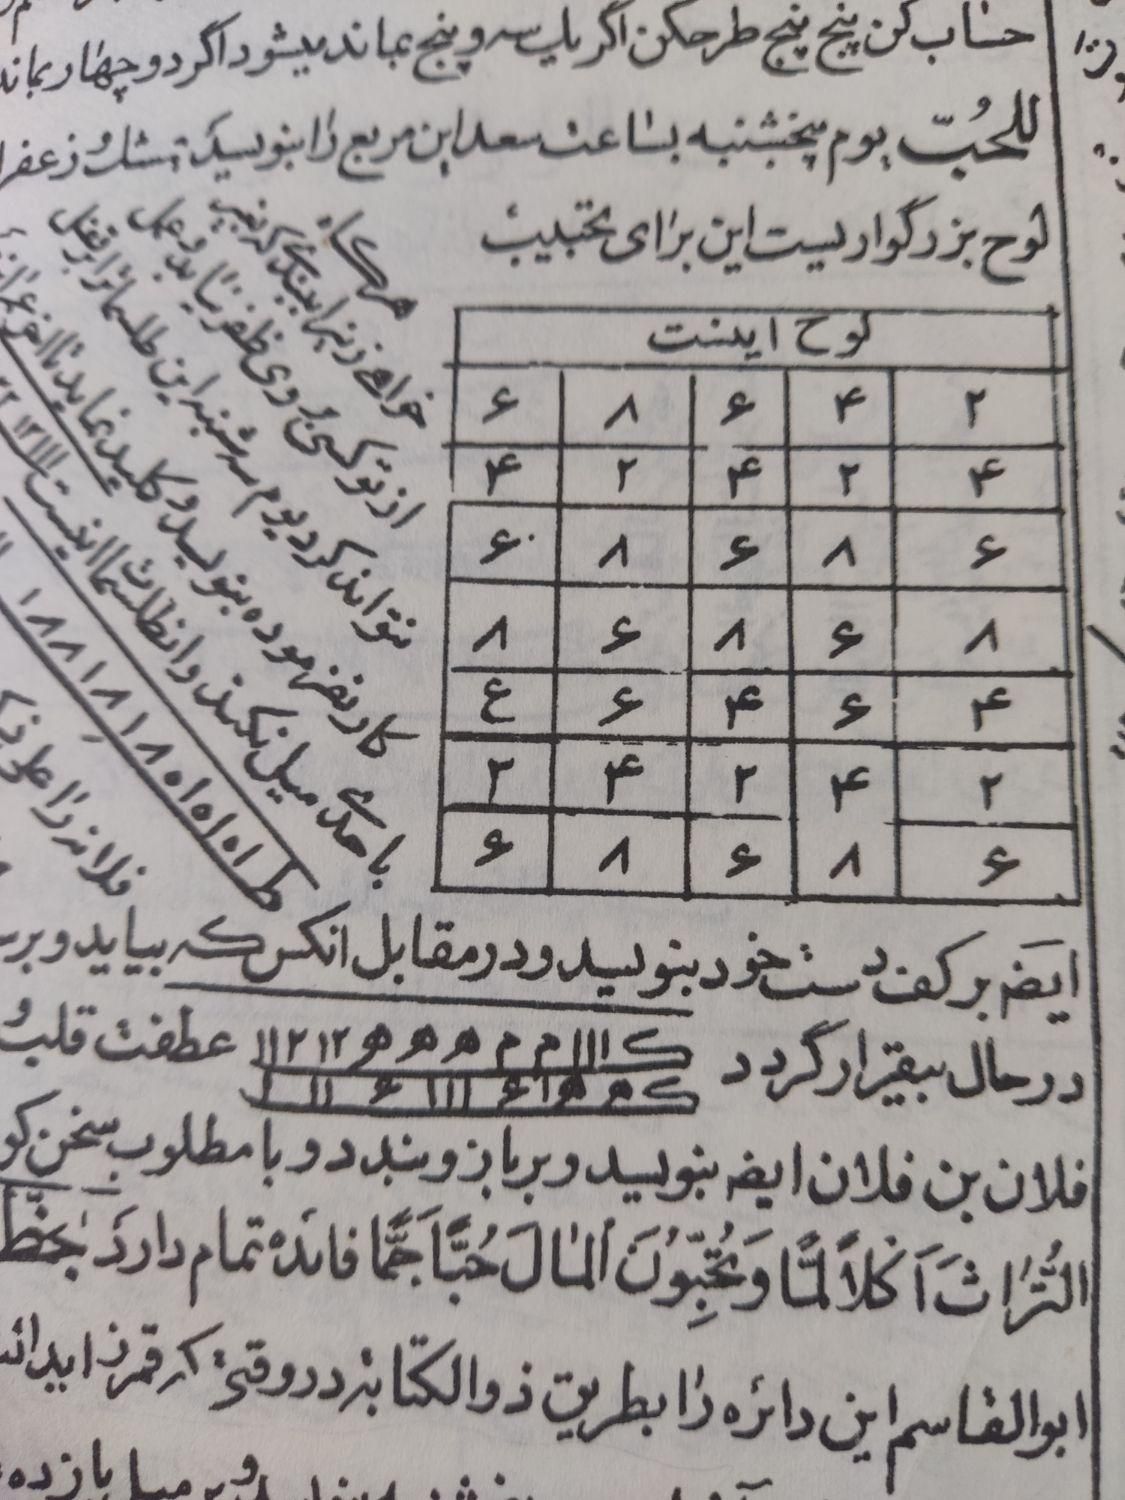 حساب کن پنج پنج طرح کن اگر یک سه و پنج بماند میشود اگر دو چهار بماند
للحُبّ یوم پنجشنبه بساعت سعد این مربع را بنویسد بمشک و زعفرا
لوح بزرگوار یست این برای تحبیب
لوح اینست
۲ ۴ ۶ ۸ ۶
۴ ۲ ۴ ۲ ۴
۶ ۸ ۶ ۸ ۶
۸ ۶ ۸ ۶ ۸
۴ ۶ ۴ ۶ ع
۲ ۴ ۲ ۴ ۲
۶ ۸ ۶ ۸ ۶
هرگاه
خواهی زنی را ببندی که بغیر
از تو کسی بر وی ظفر نیابد و عمل
نتواند کرد یوم سه شنبه این طلسم را بر قفل
کار نفرموده بنویسد و کلید نماید تا
با احدی میل نکند و انطلسمات اینست ااا ۱۲
ط ا ه ا ه ا ه ا ۸ ۱ ۸ ۱ ۸ ۸ ۱
فلانه را علی
ایضه بر کف دست خود بنویسد و در مقابل انکس که بیاید و بر
در حال بیقرار گردد ک ااا م م ه ه ه ۱۲ ۲ اا عطفت قلب
ک ه ه ا ۶ ااا ۶ اا ا
فلان بن فلان ایضه بنویسد و بر بازو بندد و با مطلوب سخن کو
التُّرٰاثَ اَکْلاً لَمًّا وَ تُحِبّوُنَ اَلمٰالَ حُبًّا جَمًّا فائده تمام دارد بخط
ابوالقاسم این دائره را بطریق ذوالکتابه در وقتی که قمر زاید